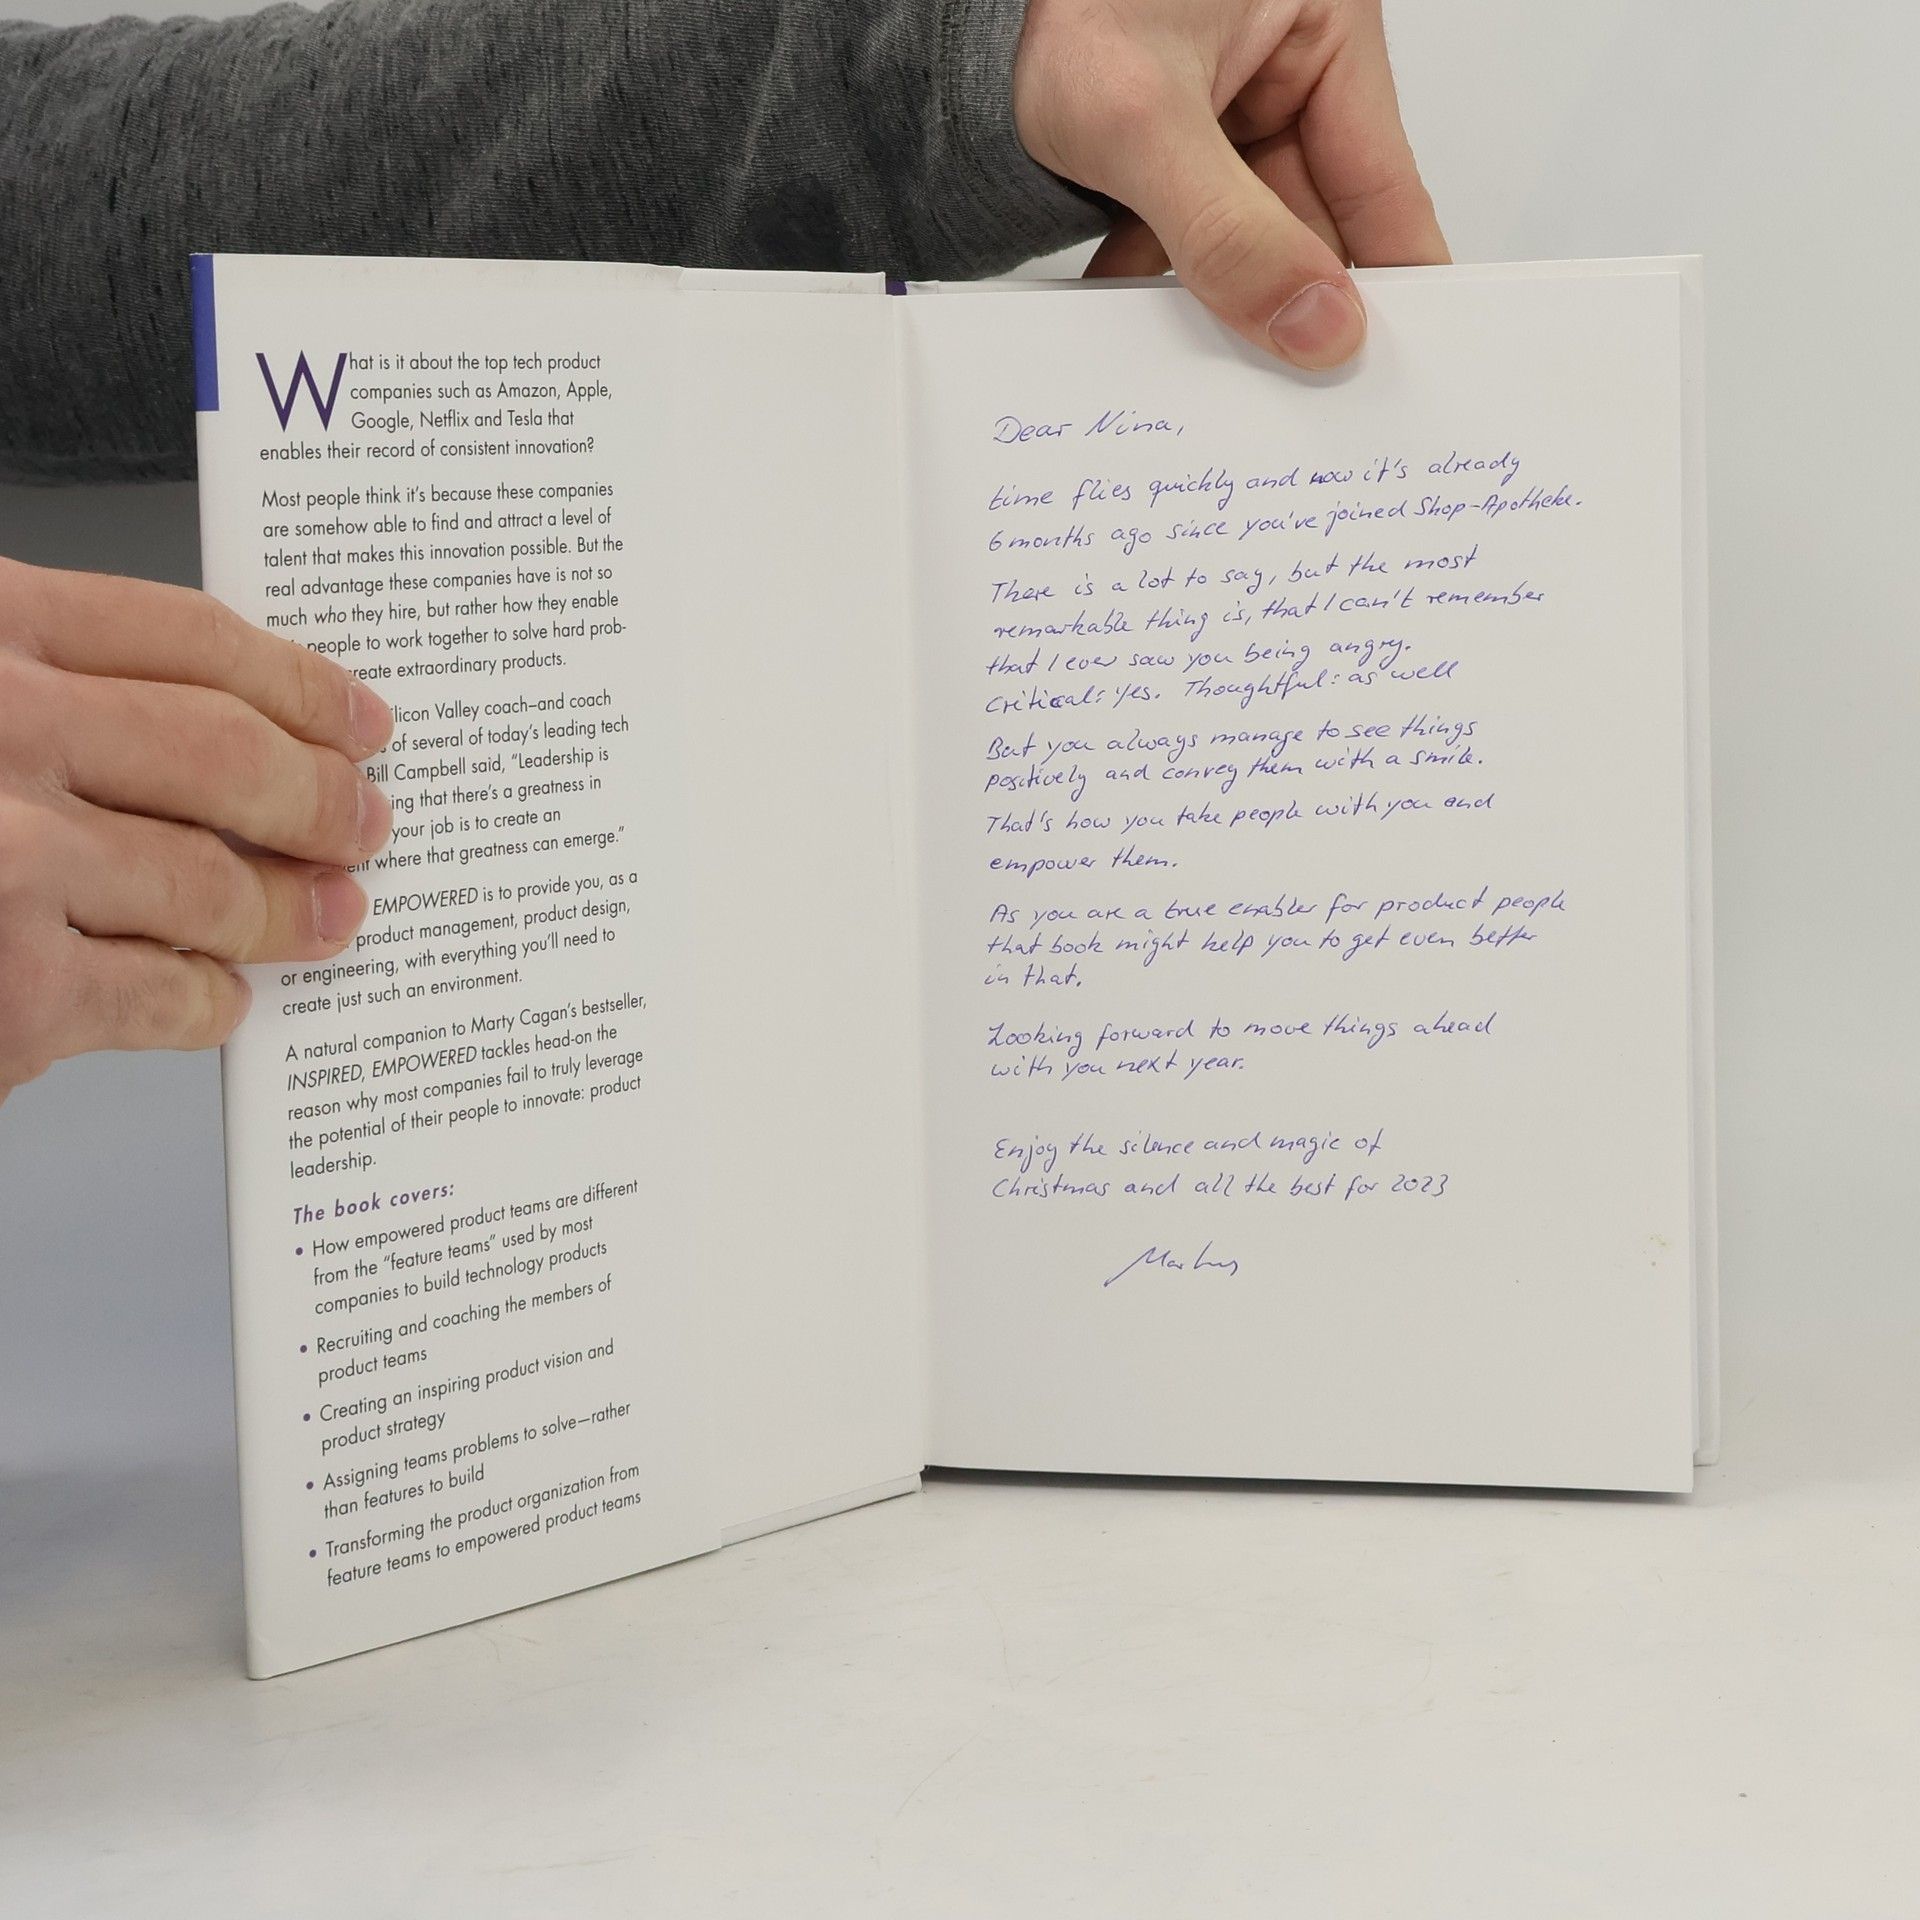 What is it about the top tech product
companies such as Amazon, Apple,
Google, Netflix and Tesla that
enables their record of consistent innovation?
Most people think it's because these companies
are somehow able to find and attract a level of
talent that makes this innovation possible. But the
real advantage these companies have is not so
much who they hire, but rather how they enable
people to work together to solve hard prob-
create extraordinary products.
licon Valley coach–and coach
of several of today's leading tech
Bill Campbell said, "Leadership is
ing that there's a greatness in
your job is to create an
ent where that greatness can emerge."
EMPOWERED is to provide you, as a
product management, product design,
or engineering, with everything you'll need to
create just such an environment.
A natural companion to Marty Cagan's bestseller,
INSPIRED, EMPOWERED tackles head-on the
reason why most companies fail to truly leverage
the potential of their people to innovate: product
leadership.
The book covers:
• How empowered product teams are different
from the "feature teams" used by most
companies to build technology products
• Recruiting and coaching the members of
product teams
• Creating an inspiring product vision and
product strategy
• Assigning teams problems to solve—rather
than features to build
• Transforming the product organization from
feature teams to empowered product teams
Dear Nina,
time flies quickly and now it's already
6 months ago since you've joined Shop-Apotheke.
There is a lot to say, but the most
remarkable thing is, that I can't remember
that I ever saw you being angry.
Critical: yes. Thoughtful: as well
But you always manage to see things
positively and convey them with a smile.
That's how you take people with you and
empower them.
As you are a true enabler for product people
that book might help you to get even better
in that.
Looking forward to move things ahead
with you next year.
Enjoy the silence and magic of
Christmas and all the best for 2023
Markus